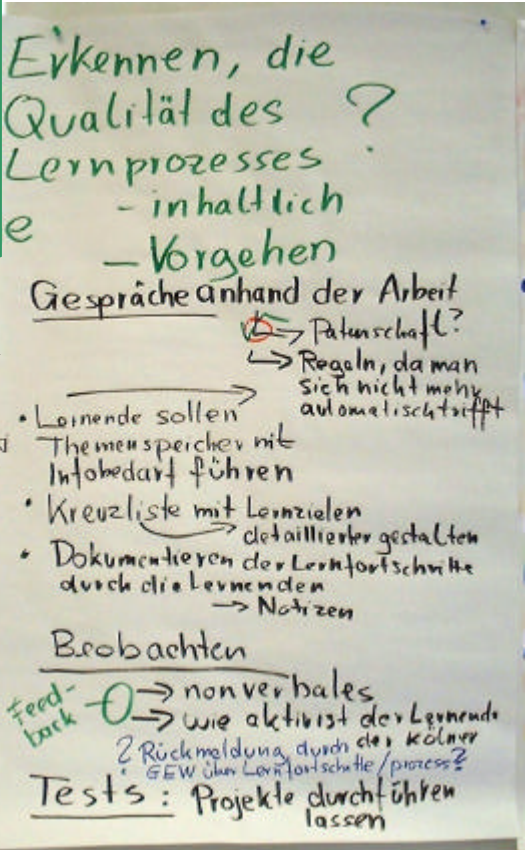 Erkennen, die
Qualität des ?
Lernprozesses
- inhaltlich
e
- Vorgehen
Gespräche anhand der Arbeit
→ Patenschaft?
↳ Regeln, da man
sich nicht mehr
automatisch trifft
• Lernende sollen
Themenspeicher mit
Infobedarf führen
• Kreuzliste mit Lernzielen
→ detaillierter gestalten
• Dokumentieren der Lernfortschritte
durch die Lernenden
→ Notizen
Beobachten
Feed-
back
→ nonverbales
→ wie aktiv ist der Lernende
? Rückmeldung durch der Kölner
GEW über Lernfortschritte/prozess?
Tests: Projekte durchführen
lassen